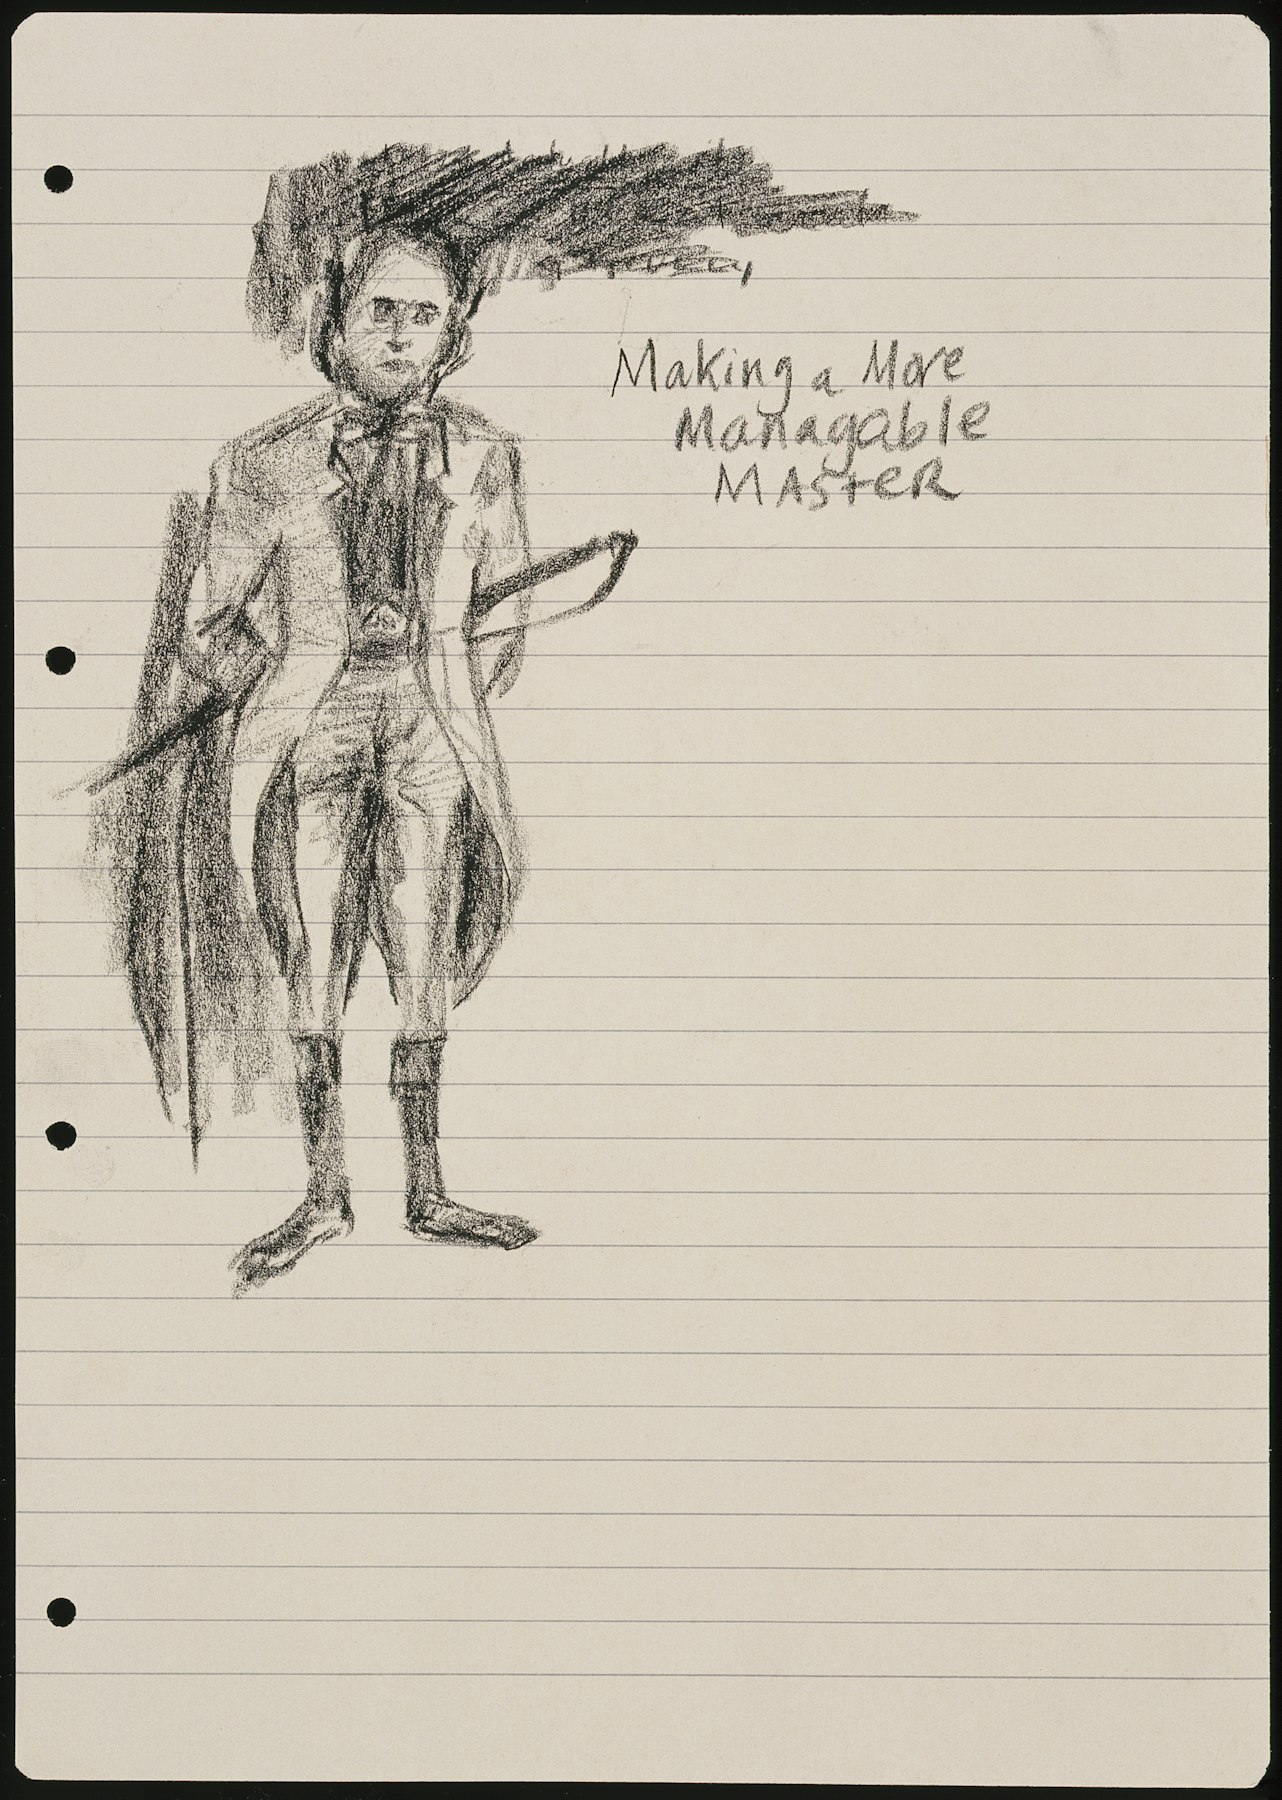 Making a More
Managable
MASTER